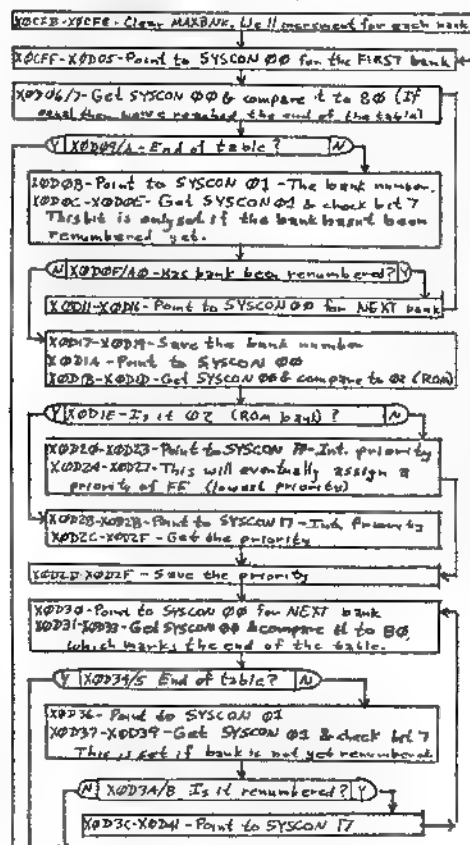 XØCFB-XØCFE - Clear MAXBNK. We'll increment for each bank
XØCFF-XØDØ5-Point to SYSCON ØØ for the FIRST bank
XØDØ6/7-Get SYSCON ØØ & compare it to 8Ø (If
equal then we've reached the end of the table)
Y XØDØ9/A-End of table? N
XØDØB-Point to SYSCON Ø1 - The bank number.
XØDØC-XØDØE- Get SYSCON Ø1 & check bit 7
This bit is only set if the bank hasn't been
renumbered yet.
N XØDØF/1Ø-Has bank been renumbered? Y
XØD11-XØD16-Point to SYSCON ØØ for NEXT bank
XØD17-XØD19-Save the bank number
XØD1A-Point to SYSCON ØØ
XØD1B-XØD1D-Get SYSCON ØØ & compare to Ø2 (ROM)
Y XØD1E-Is it Ø2 (ROM bank)? N
XØD2Ø-XØD23-Point to SYSCON -Int. priority
XØD24-XØD27-This will eventually assign a
priority of FF (lowest priority)
XØD28-XØD2B-Point to SYSCON 17-Int. Priority
XØD2C-XØD2F - Get the priority
XØD2D-XØD2F - Save the priority
XØD3Ø-Point to SYSCON ØØ for NEXT bank
XØD31-XØD33-Get SYSCON ØØ & compare it to 8Ø,
which marks the end of the table.
Y XØD34/5 End of table? N
XØD36- Point to SYSCON Ø1
XØD37-XØD39- Get SYSCON Ø1 & check bit 7
This is set if bank is not yet renumbered
N XØD3A/B Is it renumbered? Y
XØD3C-XØD41 - Point to SYSCON 17